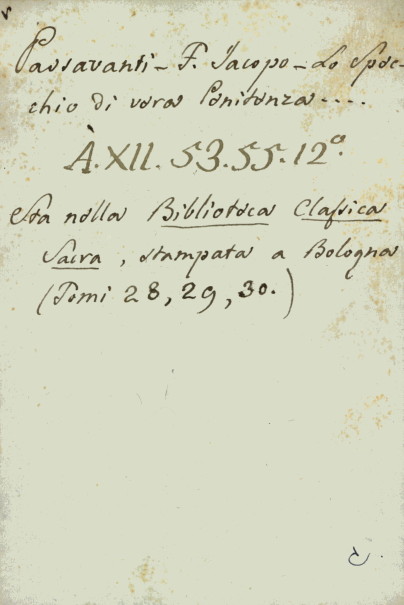 Passavanti - F. Jacopo - Lo Spec-
chio di vera Penitenza....
À.XII. 53.55. 12º.
Sta nella Biblioteca Classica
Sacra, stampata a Bologna
(Tomi 28, 29, 30.)